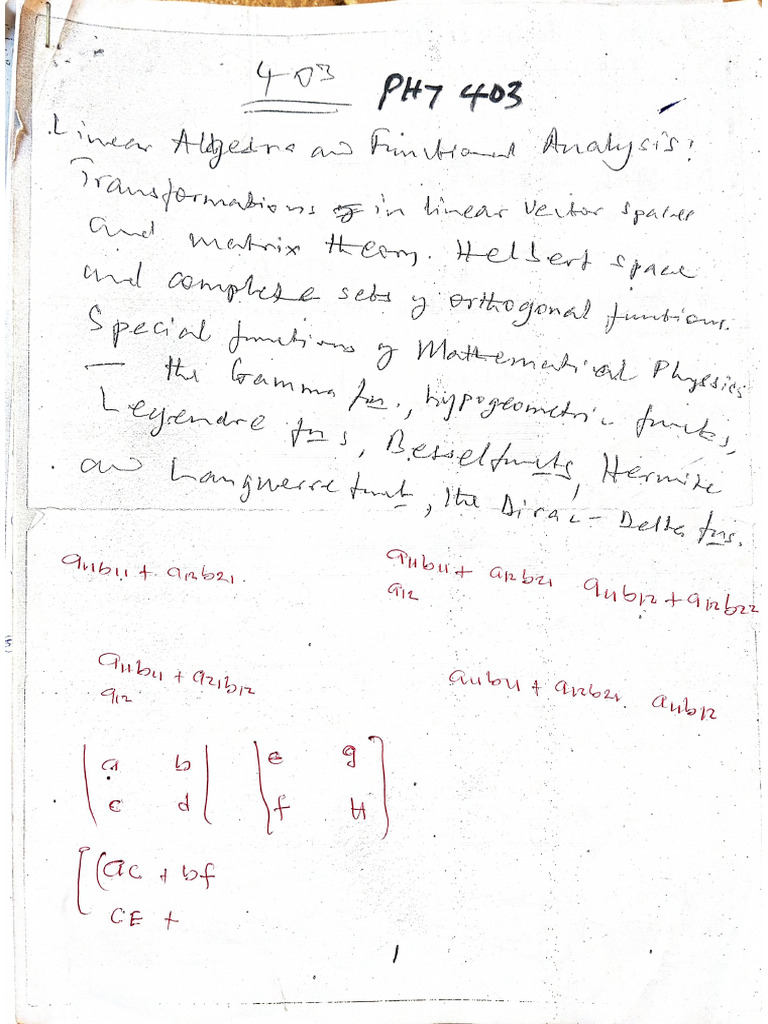 403 PHY 403
Linear Algebra and Functional Analysis:
Transformations in linear vector spaces
and matrix theory. Helbert space
and complete sets of orthogonal functions.
Special functions of Mathematical Physics
— the Gamma fn., hypogeometric functs,
Legendre fns, Bessel functs, Hermite
and Languerre funct, the Dirac-Delta fns.
a11b11 + a12b21. a11b11 + a12b21 a11b12 + a12b22
a12
a11b11 + a21b12 a11b11 + a12b21. a11b12
a12
a b e g
c d f H
[(ac + bf
CE +
1